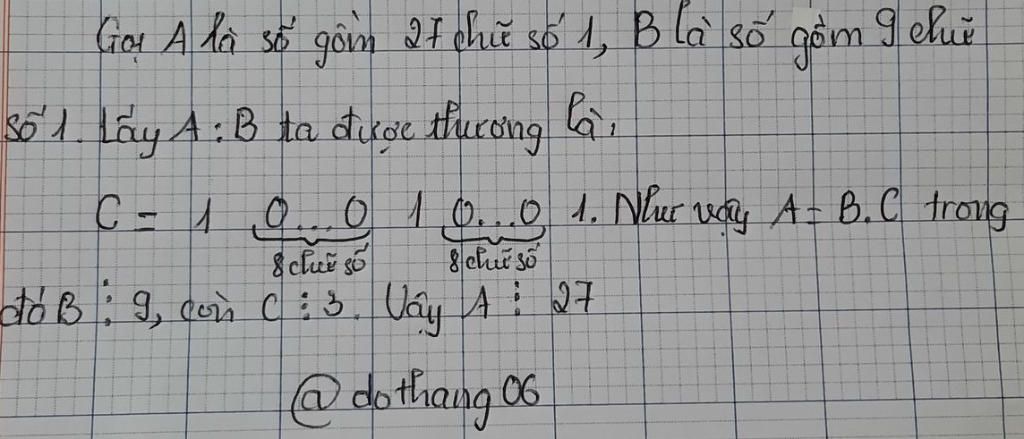 Gọi A là số gồm 27 chữ số 1, B là số gồm 9 chữ
số 1. Lấy A : B ta được thương là,
C = 1 0...0 1 0...0 1. Như vậy A = B.C trong
8 chữ số 8 chữ số
đó B ⋮ 9, còn C ⋮ 3. Vậy A ⋮ 27
@dothang06